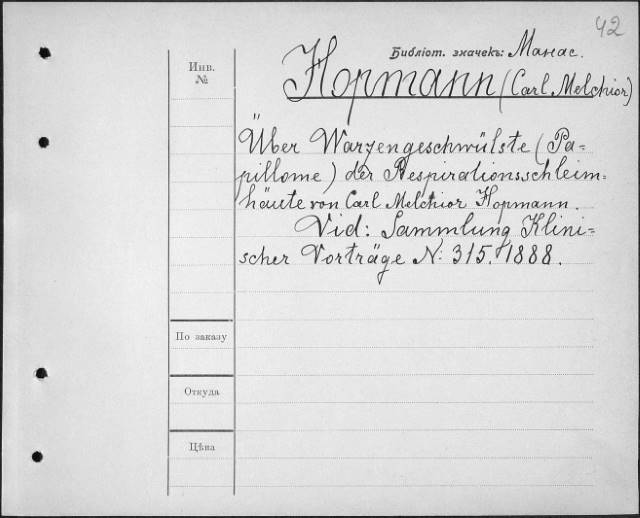 42
Библіот. значекъ: Манас.
Инв.
№
Hopmann (Carl Melchior)
Über Warzengeschwülste (Pa-
pillome) der Respirationsschleim-
häute von Carl Melchior Hopmann.
Vid: Sammlung Klini-
scher Vorträge N: 315. 1888.
По заказу
Откуда
Цѣна